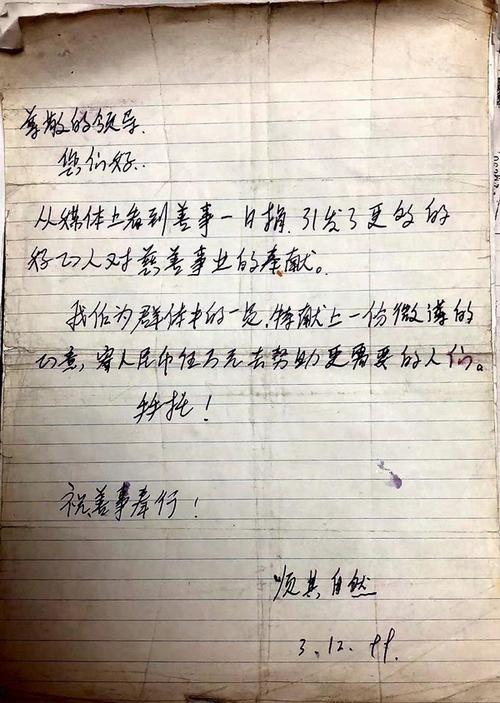 尊敬的领导.
您们好.
从媒体上看到善事一日捐.引发了更多的
好心人对慈善事业的奉献。
我作为群体中的一员,特献上一份微薄的
心意,寄人民币伍万元去帮助更需要的人们。
拜托!
祝善事奉行!
顺其自然
3.12.99.